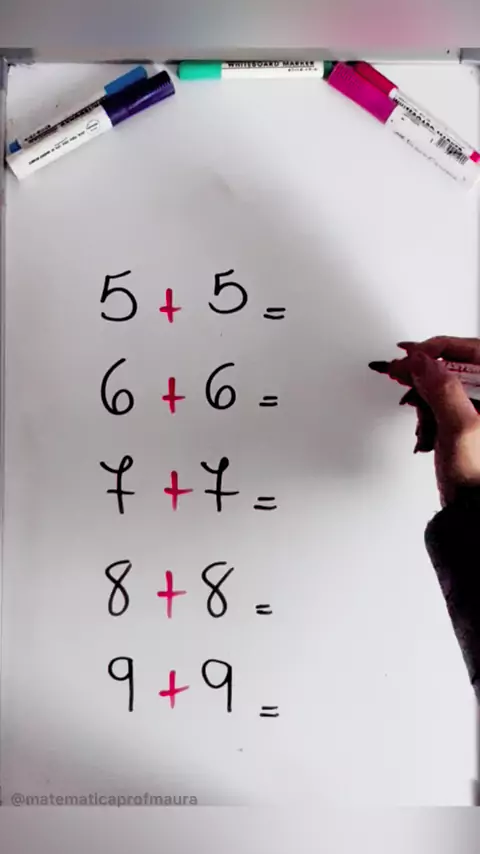 WHITEBOARD MARKER
5 + 5 =
6 + 6 =
7 + 7 =
8 + 8 =
9 + 9 =
@matematicaprofmaura